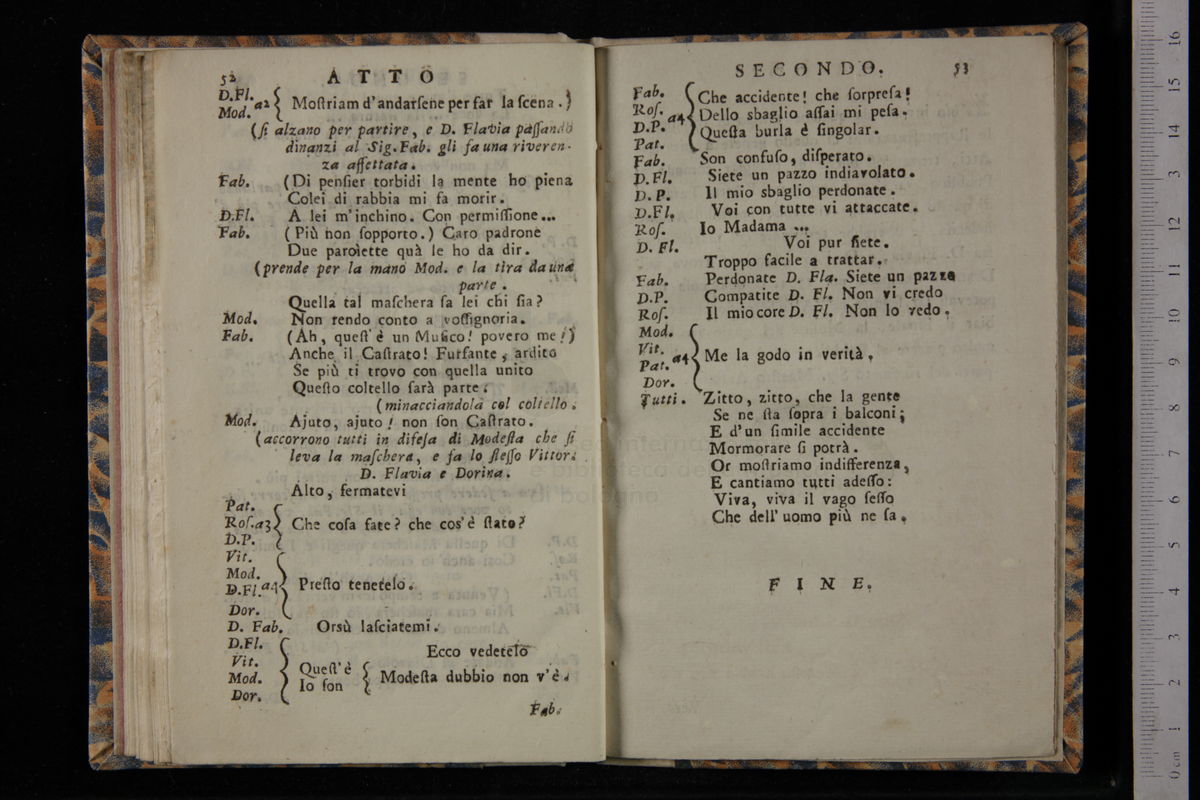 52 ATTO
D.Fl.
Mod. a2 { Moſtriam d'andarſene per far la ſcena.)
(ſi alzano per partire, e D. Flavia paſſando
dinanzi al Sig. Fab. gli fa una riveren-
za affettata.
Fab. (Di penſier torbidi la mente ho piena
Colei di rabbia mi fa morir.
D.Fl. A lei m'inchino. Con permiſſione...
Fab. (Più non ſopporto.) Caro padrone
Due parolette quà le ho da dir.
(prende per la mano Mod. e la tira da una
parte.
Quella tal maſchera ſa lei chi ſia?
Mod. Non rendo conto a voſſignoria.
Fab. (Ah, queſt'è un Muſico! povero me!)
Anche il Caſtrato! Furfante, ardito
Se più ti trovo con quella unito
Queſto coltello farà parte.
(minacciandola col coltello.
Mod. Ajuto, ajuto! non ſon Caſtrato.
(accorrono tutti in difeſa di Modeſta che ſi
leva la maſchera, e fa lo ſteſſo Vittor.
D. Flavia e Dorina.
Alto, fermatevi
Pat.
Roſ. a3 { Che coſa fate? che cos'è ſtato?
D.P.
Vit.
Mod.
D.Fl. a4 { Preſto tenetelo.
Dor.
D. Fab. Orsù laſciatemi.
D.Fl. Ecco vedetelo
Vit.
Mod. { Queſt'è
Io ſon { Modeſta dubbio non v'è.
Dor.
Fab.
SECONDO. 53
Fab. { Che accidente! che ſorpreſa!
Roſ. a4 Dello sbaglio aſſai mi peſa.
D.P. Queſta burla è ſingolar.
Pat.
Fab. Son confuſo, diſperato.
D.Fl. Siete un pazzo indiavolato.
D.P. Il mio sbaglio perdonate.
D.Fl. Voi con tutte vi attaccate.
Roſ. Io Madama ...
D. Fl. Voi pur ſiete.
Troppo facile a trattar.
Fab. Perdonate D. Fla. Siete un pazzo
D.P. Compatite D. Fl. Non vi credo
Roſ. Il mio core D. Fl. Non lo vedo.
Mod.
Vit.
Pat. a4 { Me la godo in verità.
Dor.
Tutti. Zitto, zitto, che la gente
Se ne ſta ſopra i balconi;
E d'un ſimile accidente
Mormorare ſi potrà.
Or moſtriamo indifferenza,
E cantiamo tutti adeſſo:
Viva, viva il vago ſeſſo
Che dell' uomo più ne ſa.
FINE.